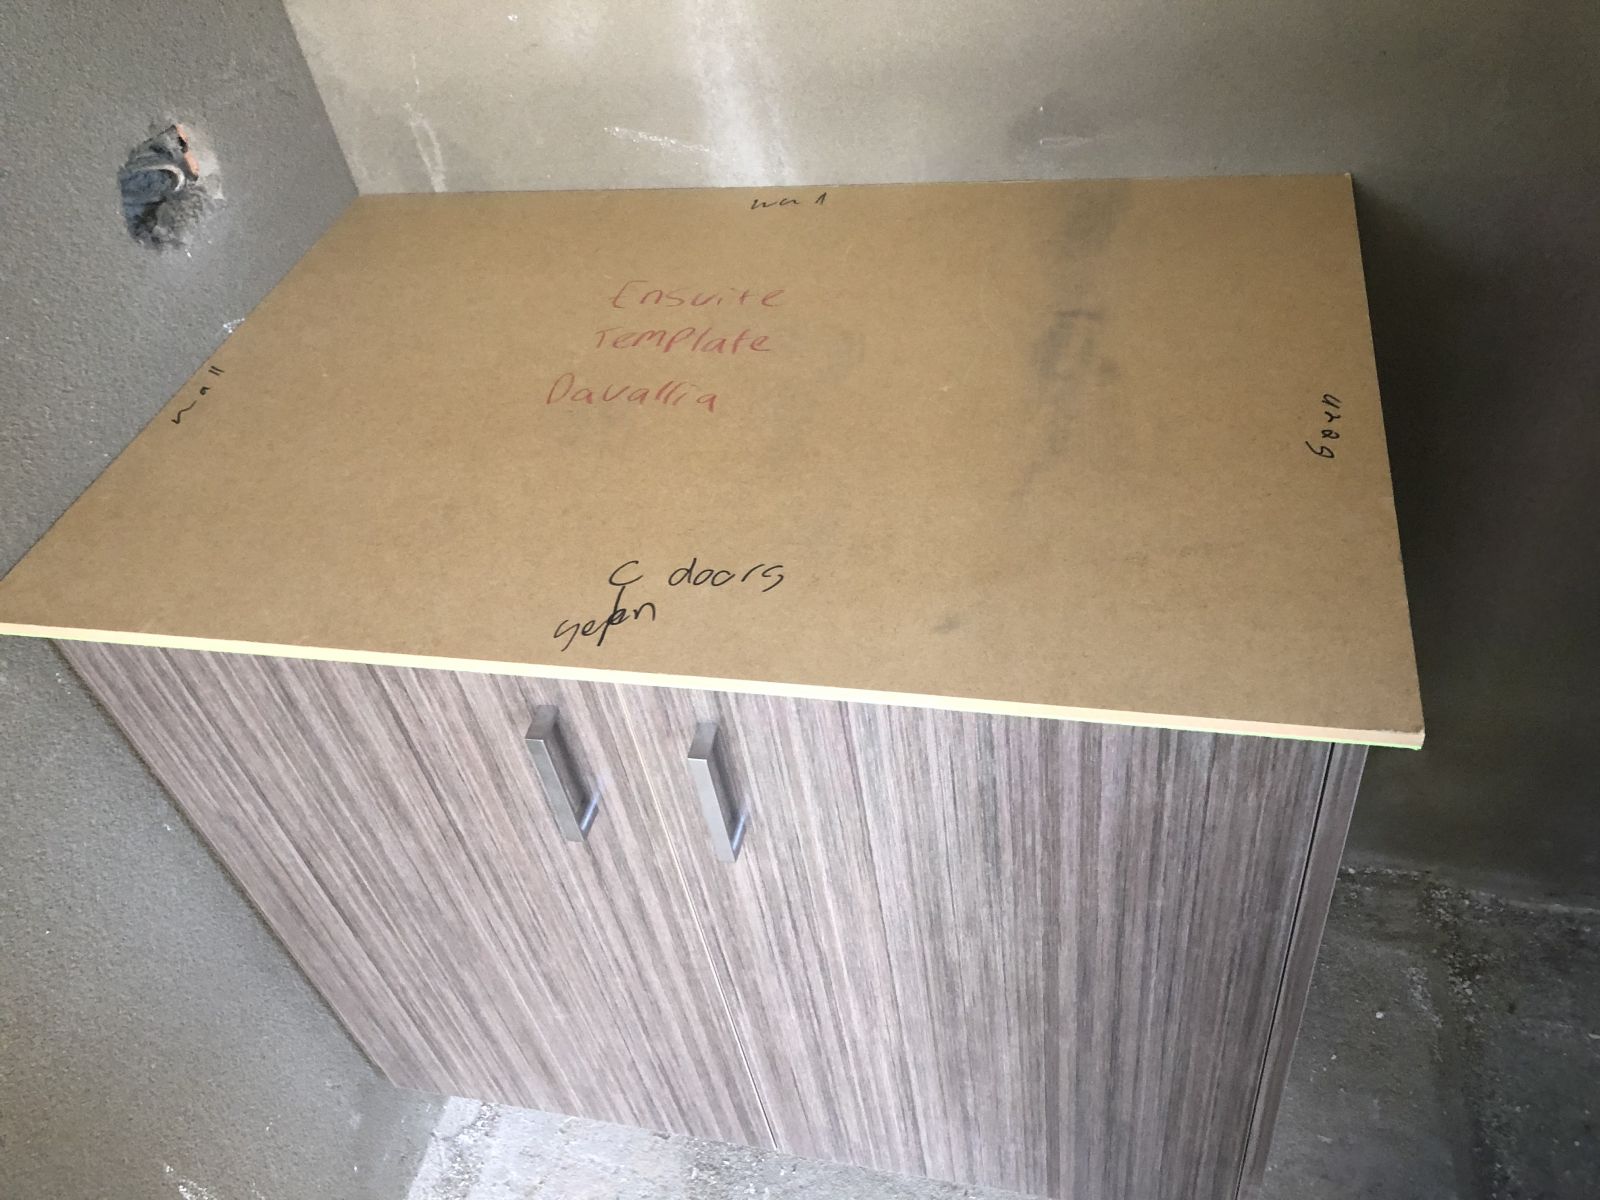 wall
Ensuite
Template
Davallia
wall
C doors
L